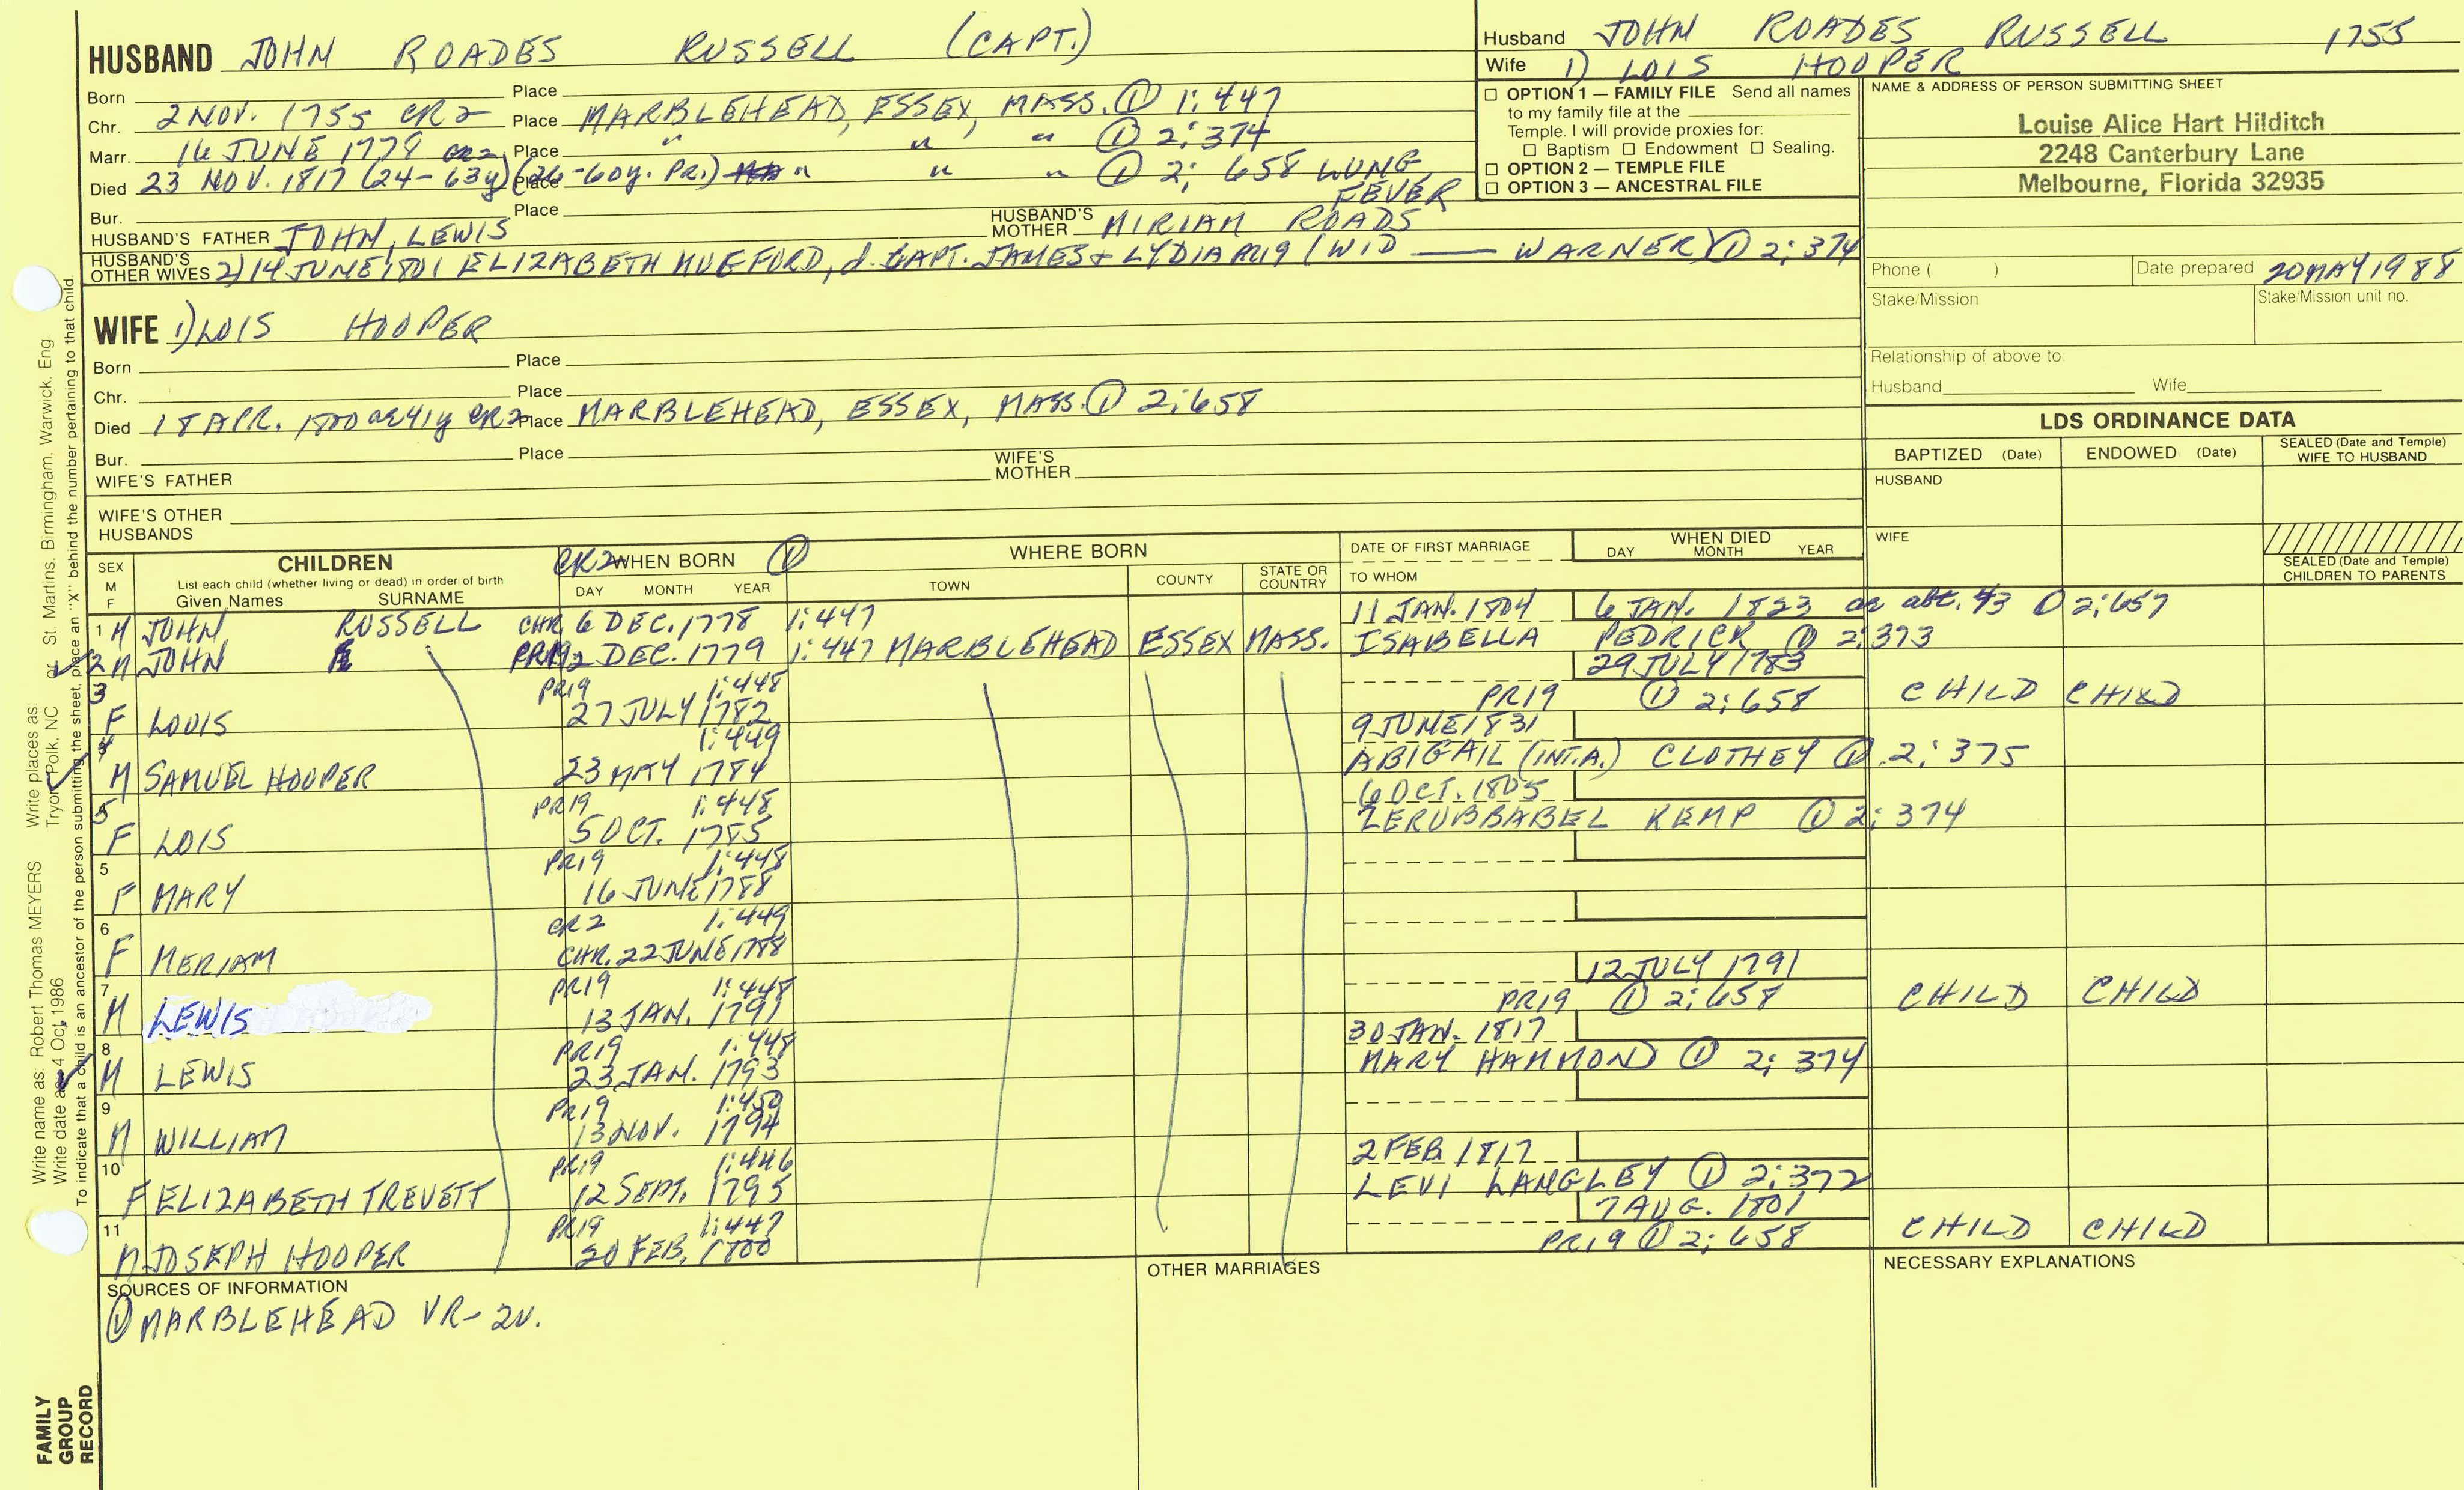 HUSBAND JOHN ROADES RUSSELL (CAPT.)
Born Place
Chr. 2 NOV. 1755 CR2 Place MARBLEHEAD, ESSEX, MASS. ① 1:447
Marr. 16 JUNE 1778 CR2 Place " " " ① 2:374
Died 23 NOV. 1817 (24-63y) (26-60y. PR.1) Place " " " ① 2: 658 LUNG FEVER
Bur. Place
HUSBAND'S FATHER JOHN, LEWIS HUSBAND'S MOTHER MIRIAM ROADS
HUSBAND'S OTHER WIVES 2) 14 JUNE 1801 ELIZABETH MUGFORD, d. CAPT. JAMES + LYDIA PR19 (WID —— WARNER) ① 2:374
Husband JOHN ROADES RUSSELL 1755
Wife 1) LOIS HOOPER
☐ OPTION 1 — FAMILY FILE Send all names
to my family file at the
Temple. I will provide proxies for:
☐ Baptism ☐ Endowment ☐ Sealing.
☐ OPTION 2 — TEMPLE FILE
☐ OPTION 3 — ANCESTRAL FILE
NAME & ADDRESS OF PERSON SUBMITTING SHEET
Louise Alice Hart Hilditch
2248 Canterbury Lane
Melbourne, Florida 32935
Phone ( ) Date prepared 20 MAY 1988
Stake/Mission Stake/Mission unit no.
Relationship of above to:
Husband Wife
WIFE 1) LOIS HOOPER
Born Place
Chr. Place
Died 18 APR. 1800 ae 41y CR2 Place MARBLEHEAD, ESSEX, MASS. ① 2:658
Bur. Place
WIFE'S FATHER WIFE'S MOTHER
WIFE'S OTHER HUSBANDS
LDS ORDINANCE DATA
BAPTIZED (Date) ENDOWED (Date) SEALED (Date and Temple) WIFE TO HUSBAND
HUSBAND
WIFE
SEALED (Date and Temple) CHILDREN TO PARENTS
SEX M F
CHILDREN
List each child (whether living or dead) in order of birth
Given Names SURNAME
CR2 WHEN BORN ①
DAY MONTH YEAR
WHERE BORN
TOWN COUNTY STATE OR COUNTRY
DATE OF FIRST MARRIAGE
TO WHOM
WHEN DIED
DAY MONTH YEAR
1 M JOHN RUSSELL CHR. 6 DEC. 1778 1:447 11 JAN. 1804 6 JAN. 1823 ae abt. 43 ① 2:657
2 M JOHN PR19 2 DEC. 1779 1:447 MARBLEHEAD ESSEX MASS. ISABELLA PEDRICK ① 2:373
3 PR19 1:448 29 JULY 1783
F LOUIS 27 JULY 1782 PR19 ① 2:658 CHILD CHILD
4 1:449 9 JUNE 1831
M SAMUEL HOOPER 23 MAY 1784 ABIGAIL (INT.A.) CLOTHEY ① 2:375
5 PR19 1:448 6 OCT. 1805
F LOIS 5 OCT. 1785 ZERUBBABEL KEMP ① 2:374
5 PR19 1:448
F MARY 16 JUNE 1788
6 CR2 1:449
F MERIAM CHR. 22 JUNE 1788
7 PR19 1:448 12 JULY 1791
M LEWIS 13 JAN. 1791 PR19 ① 2:658 CHILD CHILD
8 PR19 1:448 30 JAN. 1817
M LEWIS 23 JAN. 1793 MARY HAMMOND ① 2:374
9 PR19 1:450
M WILLIAM 13 NOV. 1794
10 PR19 1:446 2 FEB 1817
F ELIZABETH TREVETT 12 SEPT. 1795 LEVI LANGLEY ① 2:372
11 PR19 1:447 7 AUG. 1801
M JOSEPH HOOPER 20 FEB. 1800 PR19 ① 2:658 CHILD CHILD
SOURCES OF INFORMATION
① MARBLEHEAD VR-2V.
OTHER MARRIAGES
NECESSARY EXPLANATIONS
Write name as: Robert Thomas MEYERS Write places as: Tryon, Polk, NC or St. Martins, Birmingham, Warwick, Eng.
Write date as: 4 Oct 1986
To indicate that a child is an ancestor of the person submitting the sheet, place an "X" behind the number pertaining to that child.
FAMILY
GROUP
RECORD